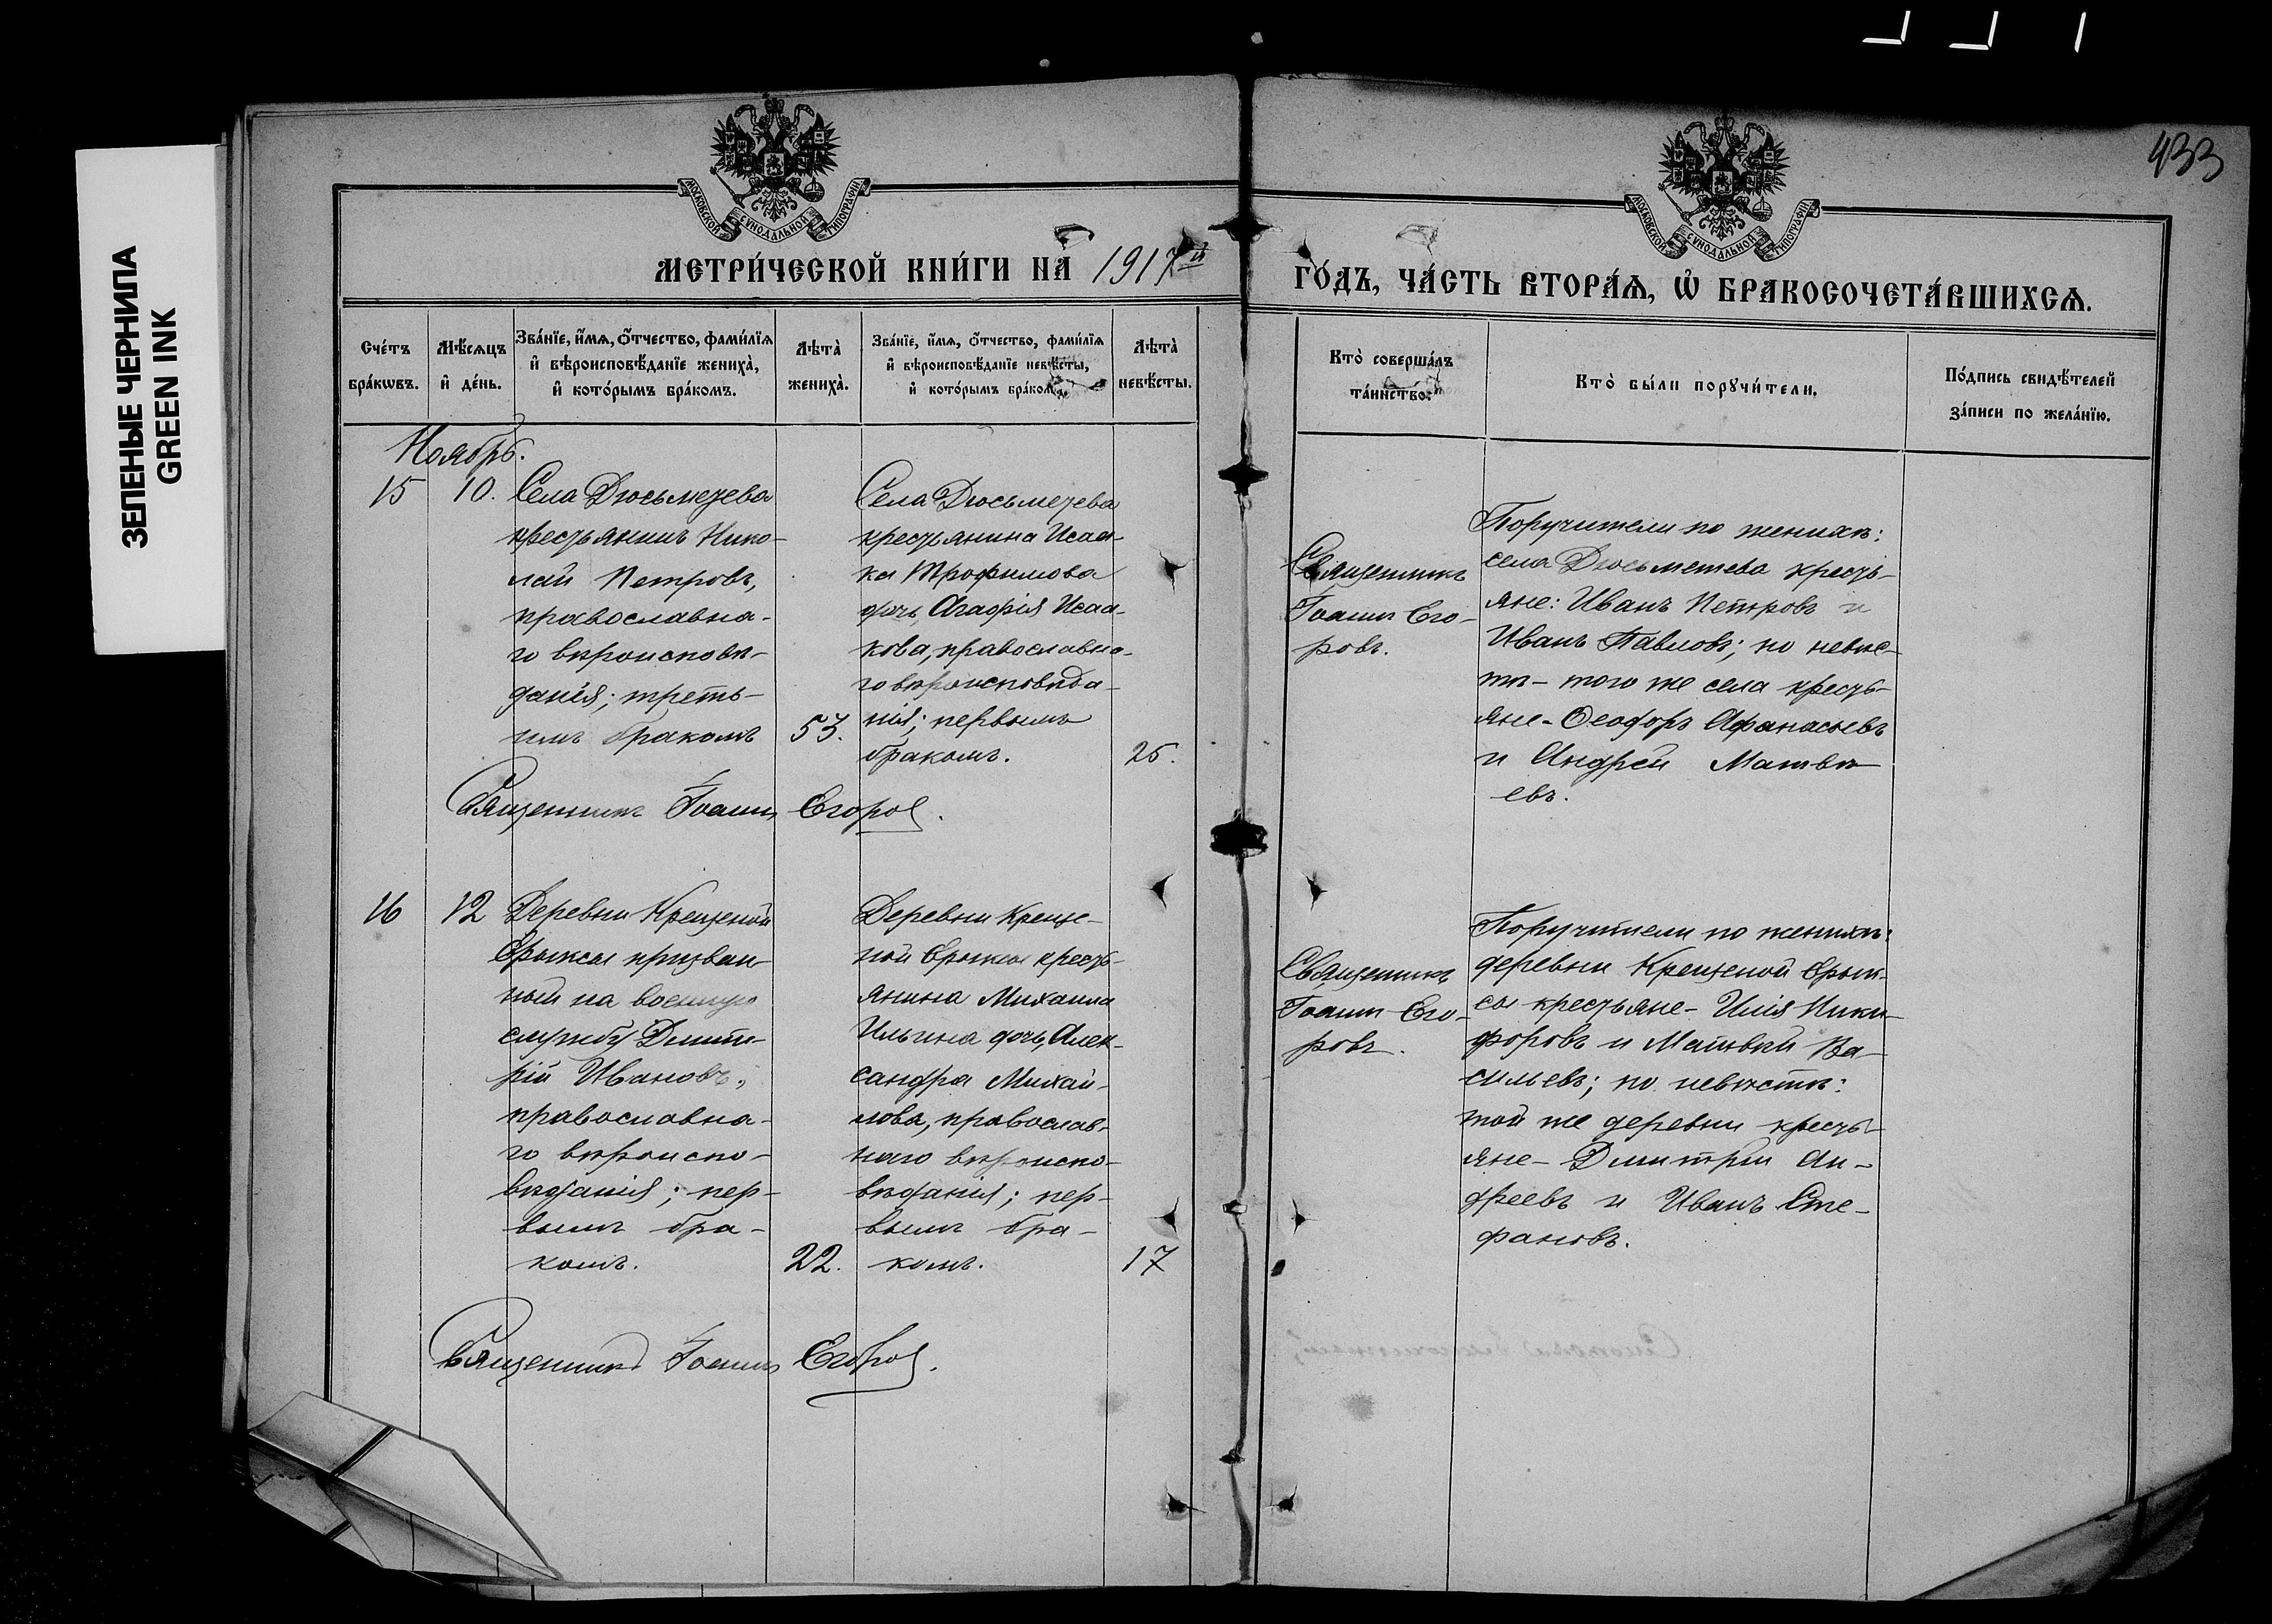 433
ЗЕЛЕНЫЕ ЧЕРНИЛА
GREEN INK
МОСКОВСКОЙ СѴНОДАЛЬНОЙ ТИПОГРАФІИ
МОСКОВСКОЙ СѴНОДАЛЬНОЙ ТИПОГРАФІИ
МЕТРИ́ЧЕСКОЙ КНИ́ГИ НА 1917й
ГО́ДЪ, ЧА́СТЬ ВТОРА́Ѧ, Ѡ҆ БРАКОСОЧЕТА́ВШИХСѦ.
Сче́тъ
бра́кѡвъ.
Мѣ́сѧцъ
и҆ де́нь.
Зва́нїе, и҆́мѧ, ѻ҆́тчество, фами́лїѧ
и҆ вѣроисповѣ́данїе жениха̀,
и҆ кото́рымъ бра́комъ.
Лѣта̀
жениха̀.
Зва́нїе, и҆́мѧ, ѻ҆́тчество, фами́лїѧ
и҆ вѣроисповѣ́данїе невѣ́сты,
и҆ кото́рымъ бра́комъ.
Лѣта̀
невѣ́сты.
Кто̀ соверша́лъ
та́инство.
Кто̀ бы́ли порꙋчи́тели.
По́дпись свидѣ́телей
за́писи по жела́нїю.
Ноябрь.
15
10.
Села Дюсьметева
крестьянинъ Нико-
лай Петровъ,
православна-
го вѣроисповѣ-
данія; треть-
имъ бракомъ
53.
Села Дюсьметева
крестьянина Исаа-
ка Трофимова
дочь Агафія Исаа-
кова, православна-
го вѣроисповѣда-
нія; первымъ
бракомъ.
25.
Священникъ
Іоаннъ Его-
ровъ.
Поручители по женихѣ:
села Дюсьметева кресть-
яне: Иванъ Петровъ и
Иванъ Павловъ; по невѣс-
тѣ - того же села кресть-
яне - Ѳеодоръ Афанасьевъ
и Андрей Матвѣ-
евъ.
Священникъ Іоаннъ Егоровъ.
16
12
Деревни Крещеной
Ерыксы призван-
ный на военную
службу Дмит-
рій Ивановъ,
православна-
го вѣроиспо-
вѣданія; пер-
вымъ бра-
комъ.
22.
Деревни Креще-
ной Ерыксы кресть-
янина Михаила
Ильина дочь Алек-
сандра Михай-
лова, православ-
наго вѣроиспо-
вѣданія; пер-
вымъ бра-
комъ.
17
Священникъ
Іоаннъ Его-
ровъ.
Поручители по женихѣ:
деревни Крещеной Ерык-
сы крестьяне - Илія Ники-
форовъ и Матвѣй Ва-
сильевъ; по невѣстѣ:
той же деревни кресть-
яне - Дмитрій Ан-
дреевъ и Иванъ Сте-
фановъ.
Священникъ Іоаннъ Егоровъ.